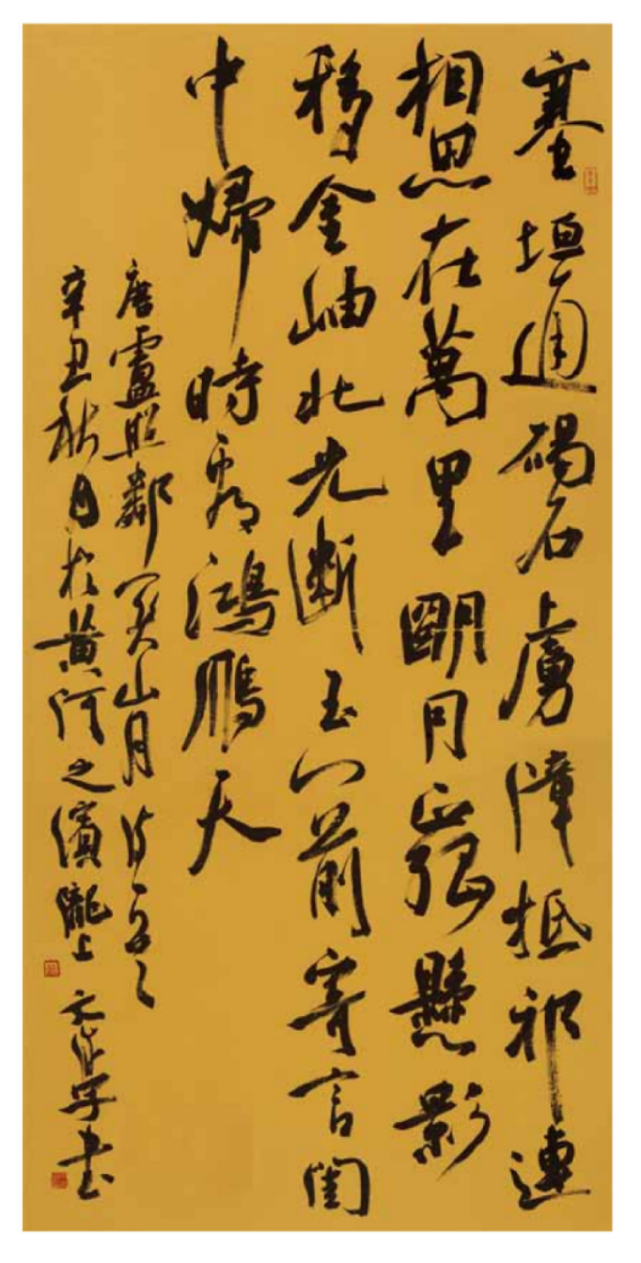 塞垣通碣石虜障抵祁連
相思在萬里朙月正孤懸影
移金岫北光斷玉門前寄言閨
中婦時看鴻鴈天
唐盧照鄰關山月詩一首
辛丑秋月於黃河之濱隴上文書